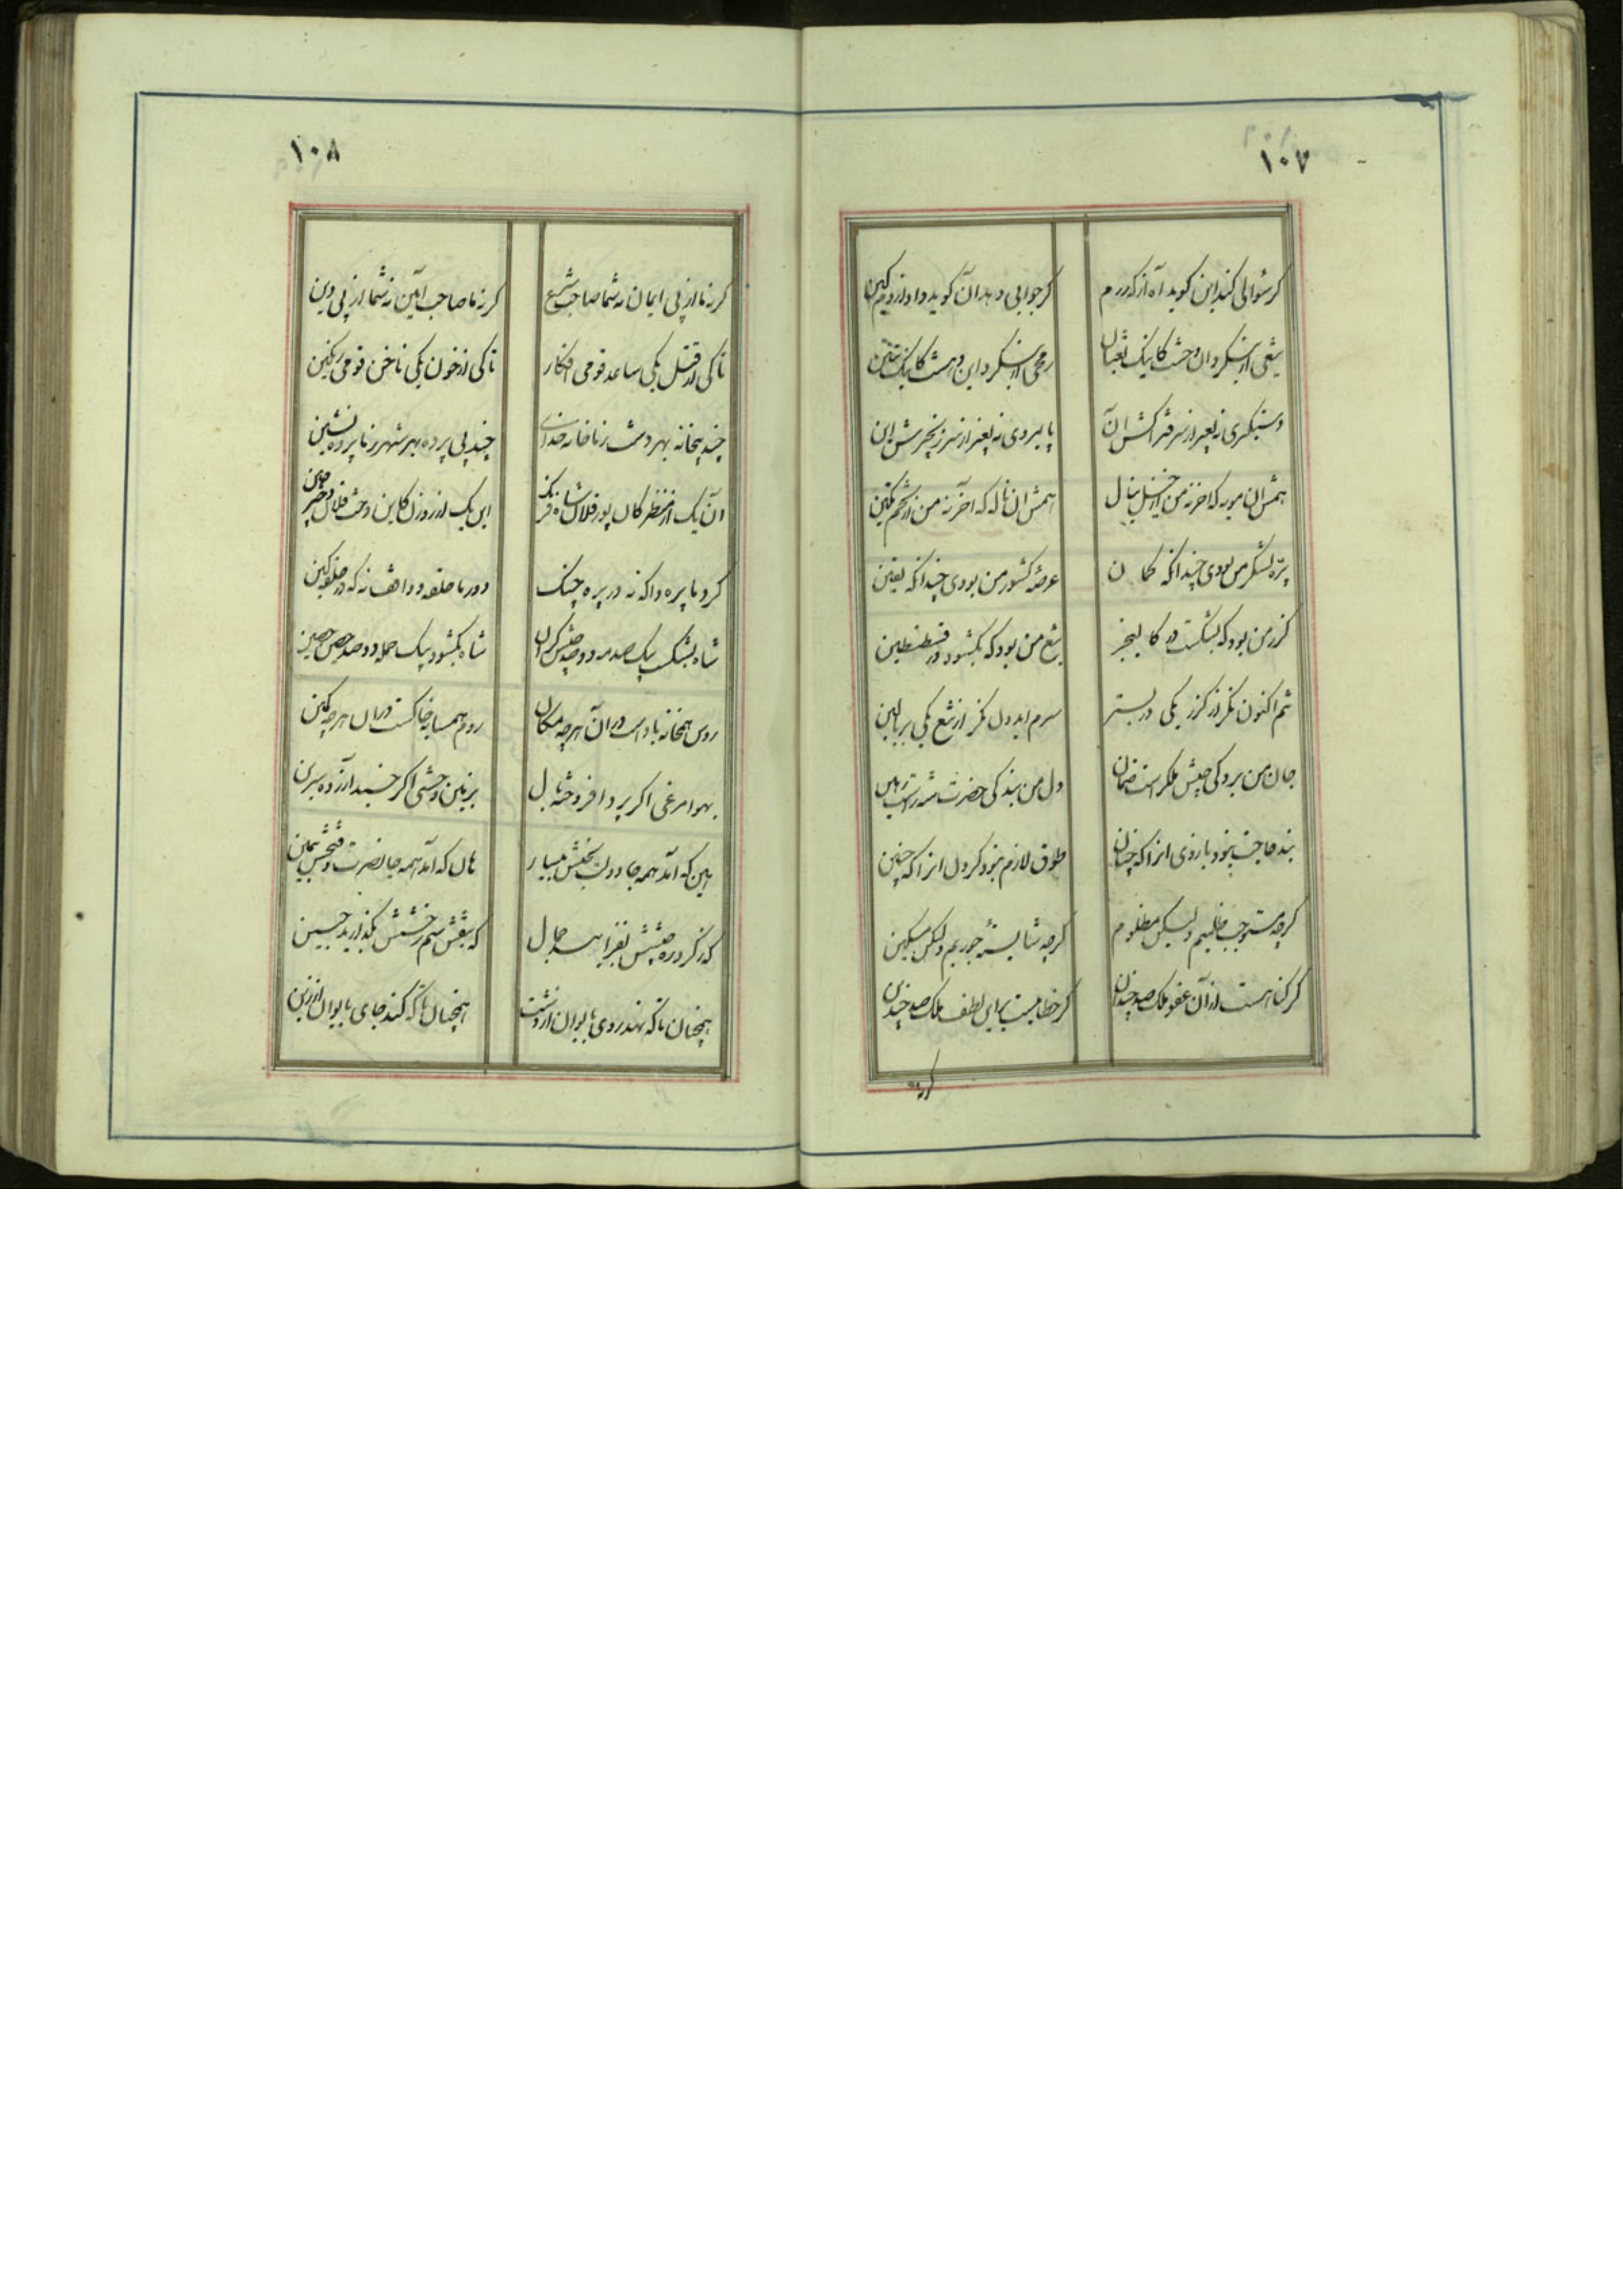 ۱۰۷
گر سؤالی کند این گوید آه از که درم
گر جوابی دهد آن گوید داد از دم کین
تیغی ار بنگرد آن وحشت کاینک ثعبان
رمحی ار بنگرد این دهشت کاینک تنین
دستگیری نه بغیر از سر فتراکش آن
پایمردی نه بغیر از سر زنجیرش این
همش آن مویه که آخر نه من از خیل ینال
همش این ناله که آخر نه من از تخم تکین
پره لشکر من بودی چندانکه گمان
عرصه کشور من بودی چندانکه یقین
گرز من بود که بشکست در کالنجر
تیغ من بود که بگشود در قسطنطین
تنم اکنون نگر از گرز یکی در بستر
سرم ایدون نگر از تیغ یکی بر بالین
جان من بردگی جیش ملک راست ضمان
دل من بندگی حضرت شه راست رهین
بند حاجب نبود بازوی آنرا که چنان
طوق لازم نبود گردن آنرا که چنین
گرچه مستوجب ظلمیم ولیکن مظلوم
گرچه شایسته جوریم ولیکن مسکین
گر گناهست از آن عفو ملک صد چندان
گر خطاییست بر این لطف ملک صد چندین
گر نه
۱۰۸
گر نه ما از پی ایمان نه شما صاحب شرع
گر نه ما صاحب آیین نه شما از پی دین
تا کی از قتل یکی ساعد قومی افکار
تا کی از خون یکی ناخن قومی رنگین
چند بیخانه بهر دشت ز ما خانه خدای
چند بی پرده بهر شهر ز ما پرده نشین
آن یک از منظر کان پور فلان شاه فرنگ
این یک از روزن کاین دخت فلان خسرو چین
گرد ما پره و آنگه نه در پره چنگ
دور ما حلقه و آنگاه نه در حلقه کین
شاه بشکست بیک صدمه دو صد جیش گران
شاه بگشود بیک حمله دو صد حصن حصین
روس همخانه بادست در آن هر چه مکان
روم همسایه خاکست در آن هر چه مکین
بهوا مرغی اگر پرد افروخته بال
بزمین وحشی اگر خسبد آزرده سرین
هین که آمد همه جا دولت و بختش بیسار
هان که آمد همه جا نصرت و فتحش بیمین
که ز گرد ره جیشش بفزاییم جمال
که بنقش سم رخشش بگذارید جبین
همچنان تا که نهد روی بایوان از دشت
همچنان تا که کند جای بایوان از زین